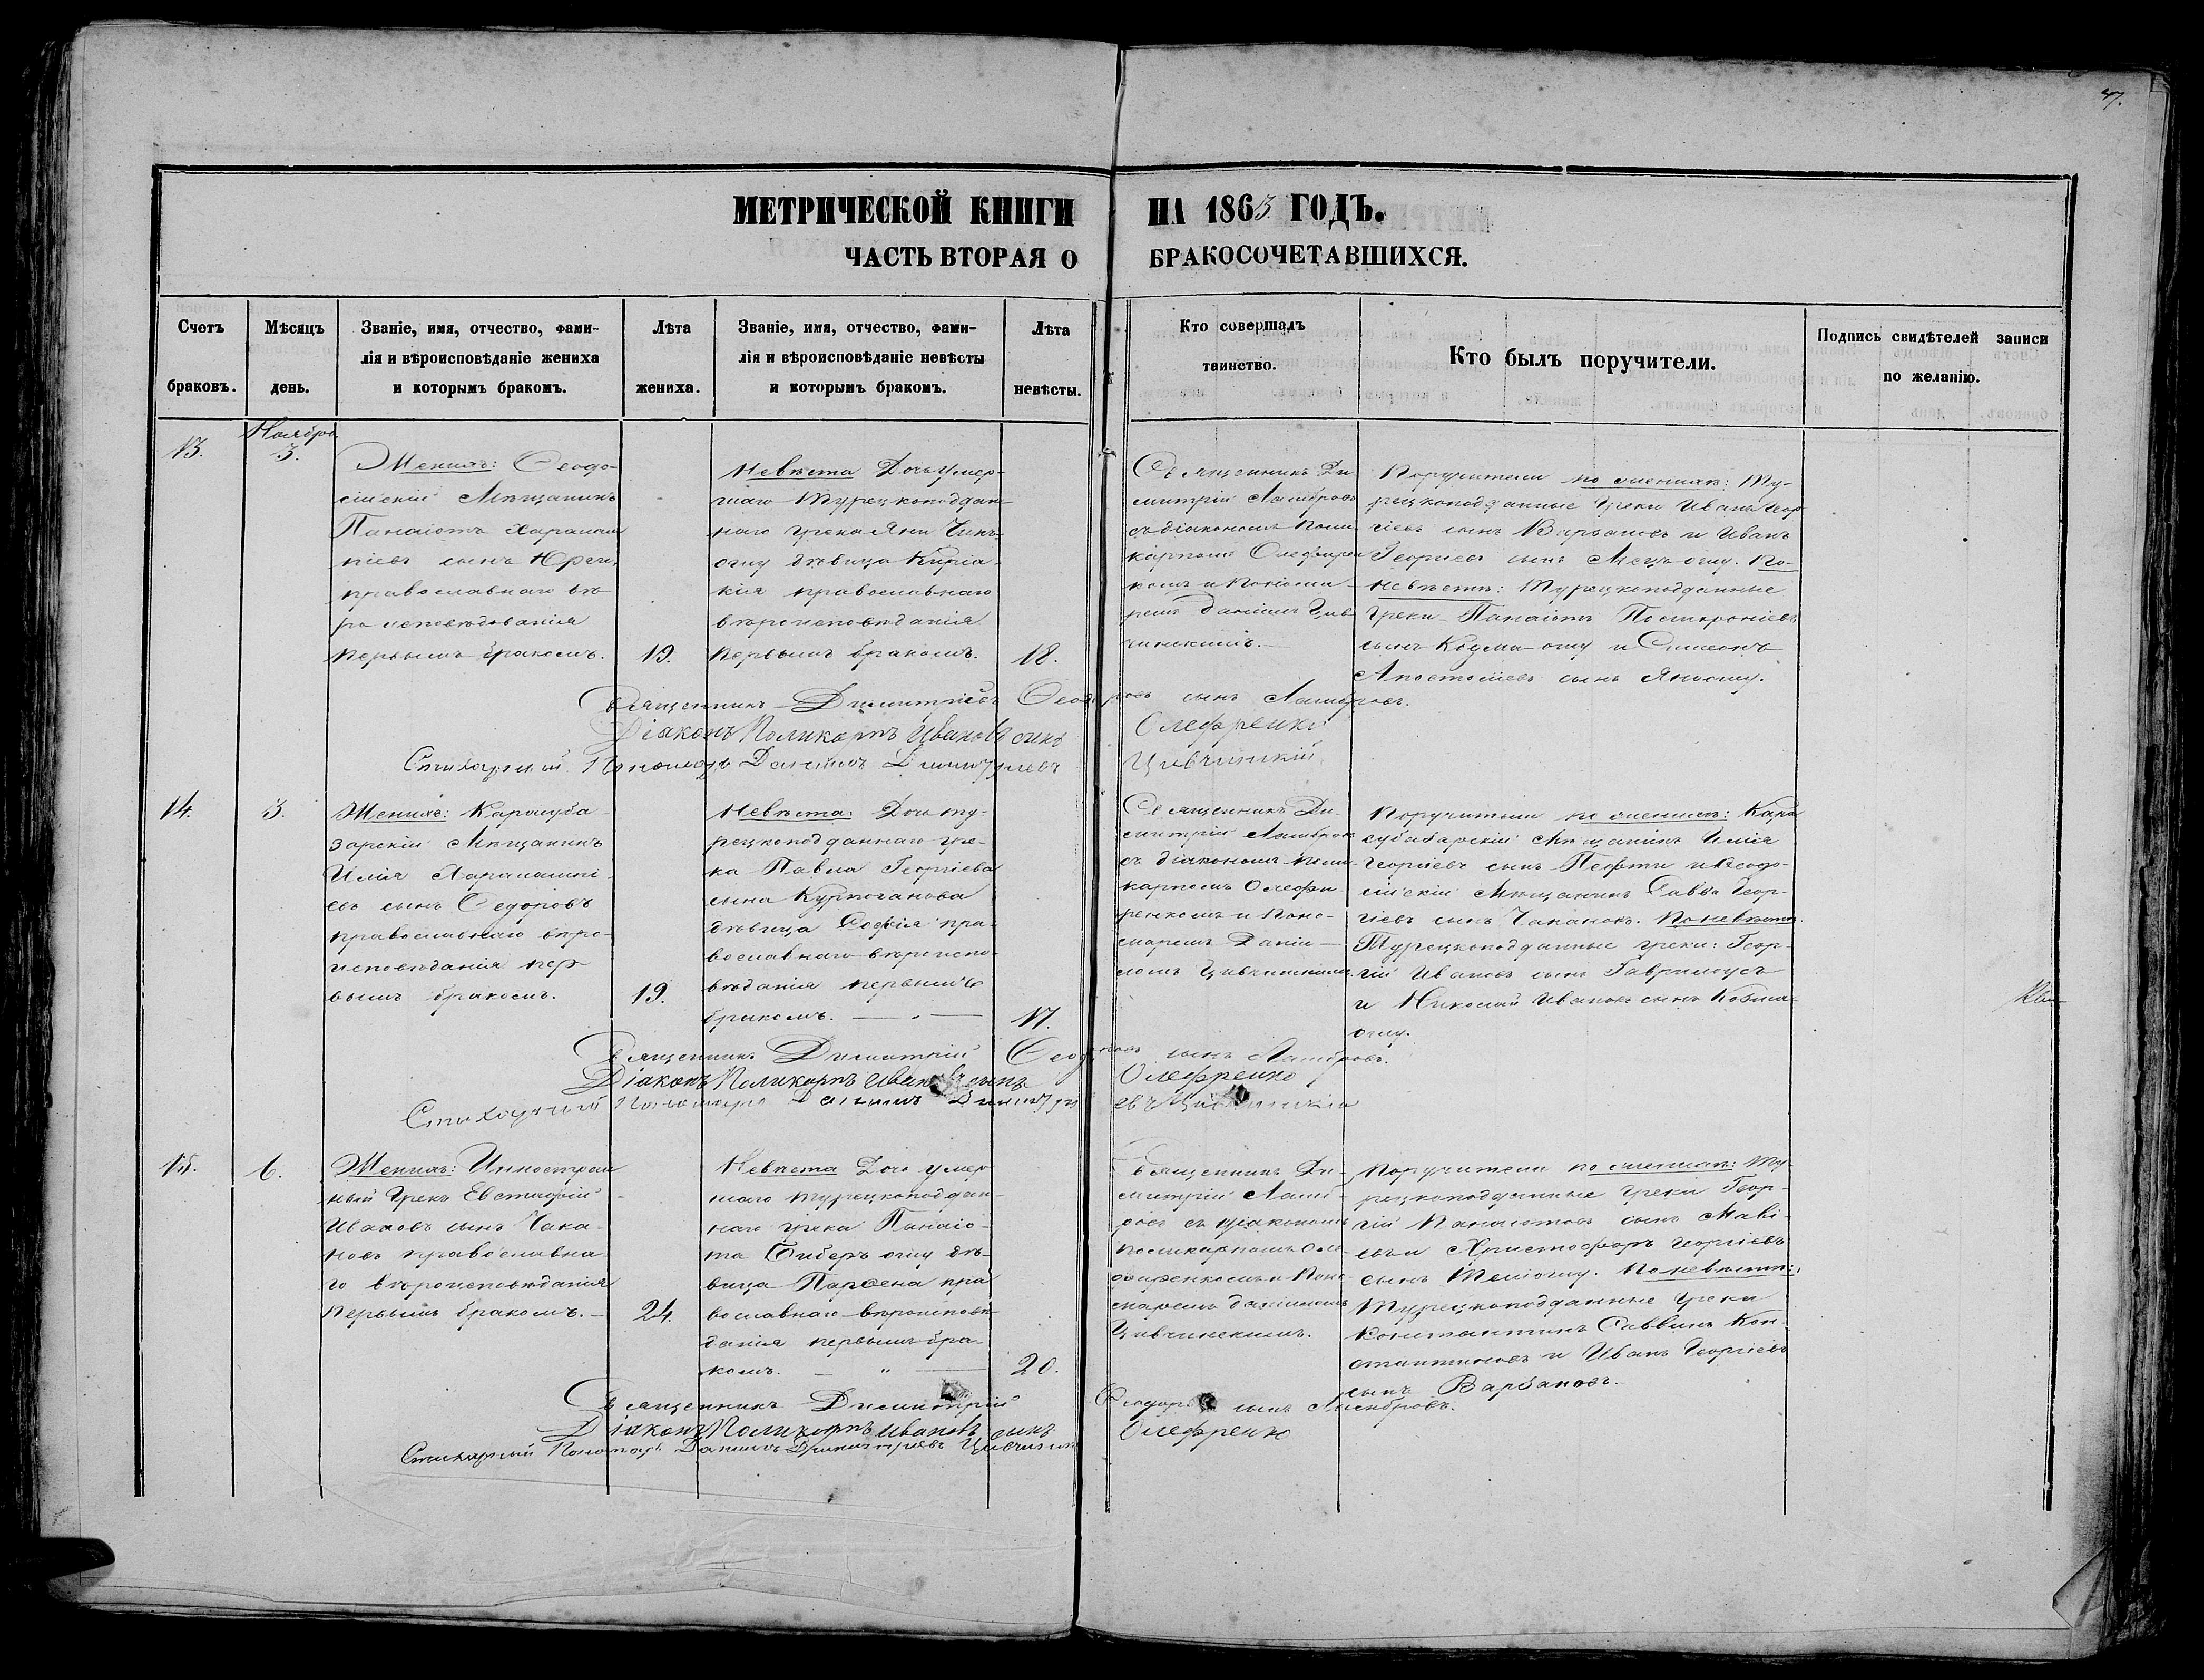 47.
МЕТРИЧЕСКОЙ КНИГИ НА 1863 ГОДЪ.
ЧАСТЬ ВТОРАЯ О БРАКОСОЧЕТАВШИХСЯ.
Счетъ браковъ.
Мѣсяцъ день.
Званіе, имя, отчество, фами-
лія и вѣроисповѣданіе жениха
и которымъ бракомъ.
Лѣта жениха.
Званіе, имя, отчество, фами-
лія и вѣроисповѣданіе невѣсты
и которымъ бракомъ.
Лѣта невѣсты.
Кто совершалъ
таинство.
Кто былъ поручители.
Подпись свидѣтелей записи
по желанію.
13.
Ноябрь
3.
Женихъ: Ѳеодо-
сійскій Мѣщанинъ
Панаіотъ Харалам
піевъ сынъ
православнаго вѣ-
роисповѣданія
первымъ бракомъ.
19.
Невѣста Дочь умер-
шаго Турецкоподдан-
наго грека Яни
оглу дѣвица Киріа-
кія православнаго
вѣроисповѣданія
первымъ бракомъ.
18.
Священникъ Ди-
митрій Ламбровъ
съ діакономъ Поли-
карпомъ
комъ и Понома-
ремъ
Поручители по женихѣ: Ту-
рецкоподданные Греки Иванъ Геор
гіевъ сынъ и Иванъ
Георгіевъ сынъ оглу. По-
невѣстѣ: Турецкоподданные
Греки Панаіотъ
сынъ Козма-оглу и Симеонъ
Апостоловъ сынъ
Священникъ Димитрій Ѳеодоровъ сынъ Ламбровъ.
Діаконъ Поликарпъ Ивановъ сынъ Олефренко
Стихарный Пономарь Даніилъ Димитріевъ Цивчинскій
14.
3.
Женихъ: Карасуба-
зарскій Мѣщанинъ
Илія Харалампі-
евъ сынъ Ѳедоровъ
православнаго вѣро-
исповѣданія пер-
вымъ бракомъ.
19.
Невѣста: Дочь ту-
рецкоподданнаго гре-
ка Павла Георгіева
сына Курпоганова
дѣвица Софія пра-
вославнаго вѣроиспо-
вѣданія первымъ
бракомъ.
17.
Священникъ Ди-
митрій Ламбровъ
съ діакономъ Поли-
карпомъ Олефи
ренкомъ и Поно-
маремъ Даніи-
ломъ Цивчинскимъ.
Поручители по женихѣ: Кара
субазарскій Мѣщанинъ Илія
Георгіевъ сынъ и Ѳеодо-
сійскій Мѣщанинъ Савва Геор-
гіевъ сынъ Чакановъ. По невѣстѣ
Турецкоподданные греки: Геор-
гій Ивановъ сынъ
и Николай Ивановъ сынъ Козма-
оглу.
Священникъ Димитрій Ѳеодоровъ сынъ Ламбровъ.
Діаконъ Поликарпъ Ивановъ сынъ Олефренко
Стихарный Пономарь Даніилъ Димитріевъ Цивчинскій
15.
6.
Женихъ: Иностран
ный Грекъ Евстафій
Ивановъ сынъ Чака-
новъ православна-
го вѣроисповѣданія
первымъ бракомъ.
24.
Невѣста Дочь умер-
шаго турецкоподдан-
наго грека Панаіо-
та Биберъ оглу дѣ-
вица Парѳена пра
вославнаго вѣроисповѣ-
данія первымъ бра-
комъ.
20.
Священникъ Ди-
митрій Ламб-
ровъ съ діакономъ
Поликарпомъ Оле-
фиренкомъ и Поно-
маремъ Даніиломъ
Цивчинскимъ.
Поручители по женихѣ: Ту-
рецкоподданные греки Геор-
гій Панаіотовъ сынъ
и Христофоръ Георгіевъ
сынъ По невѣстѣ:
Турецкоподданные Греки
Константинъ Саввинъ Кон-
стантиновъ и Иванъ Георгіевъ
сынъ Варбановъ.
Священникъ Димитрій Ѳеодоровъ сынъ Ламбровъ.
Діаконъ Поликарпъ Ивановъ сынъ Олефренко
Стихарный Пономарь Даніилъ Димитріевъ